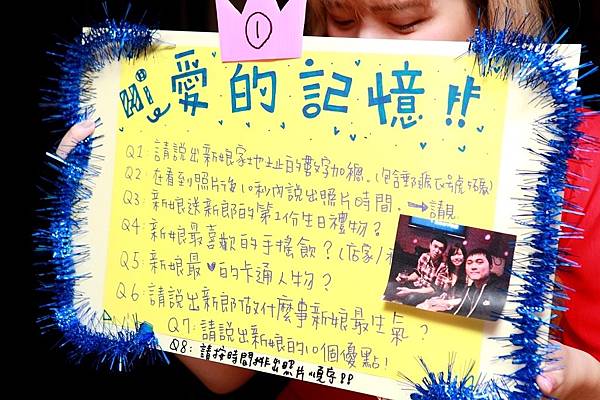 ①
愛的記憶!!
Q1:請說出新娘家地址的數字加總.(包含郵遞區號號碼)
Q2:在看到照片後10秒內說出照片時間.→請見
Q3:新娘送新郎的第1份生日禮物?
Q4:新娘最喜歡的手搖飲?(店家/
Q5:新娘最♥的卡通人物?
Q6:請說出新郎做什麼事新娘最生氣?
Q7:請說出新娘的10個優點!
Q8:請按時間排出照片順序!!